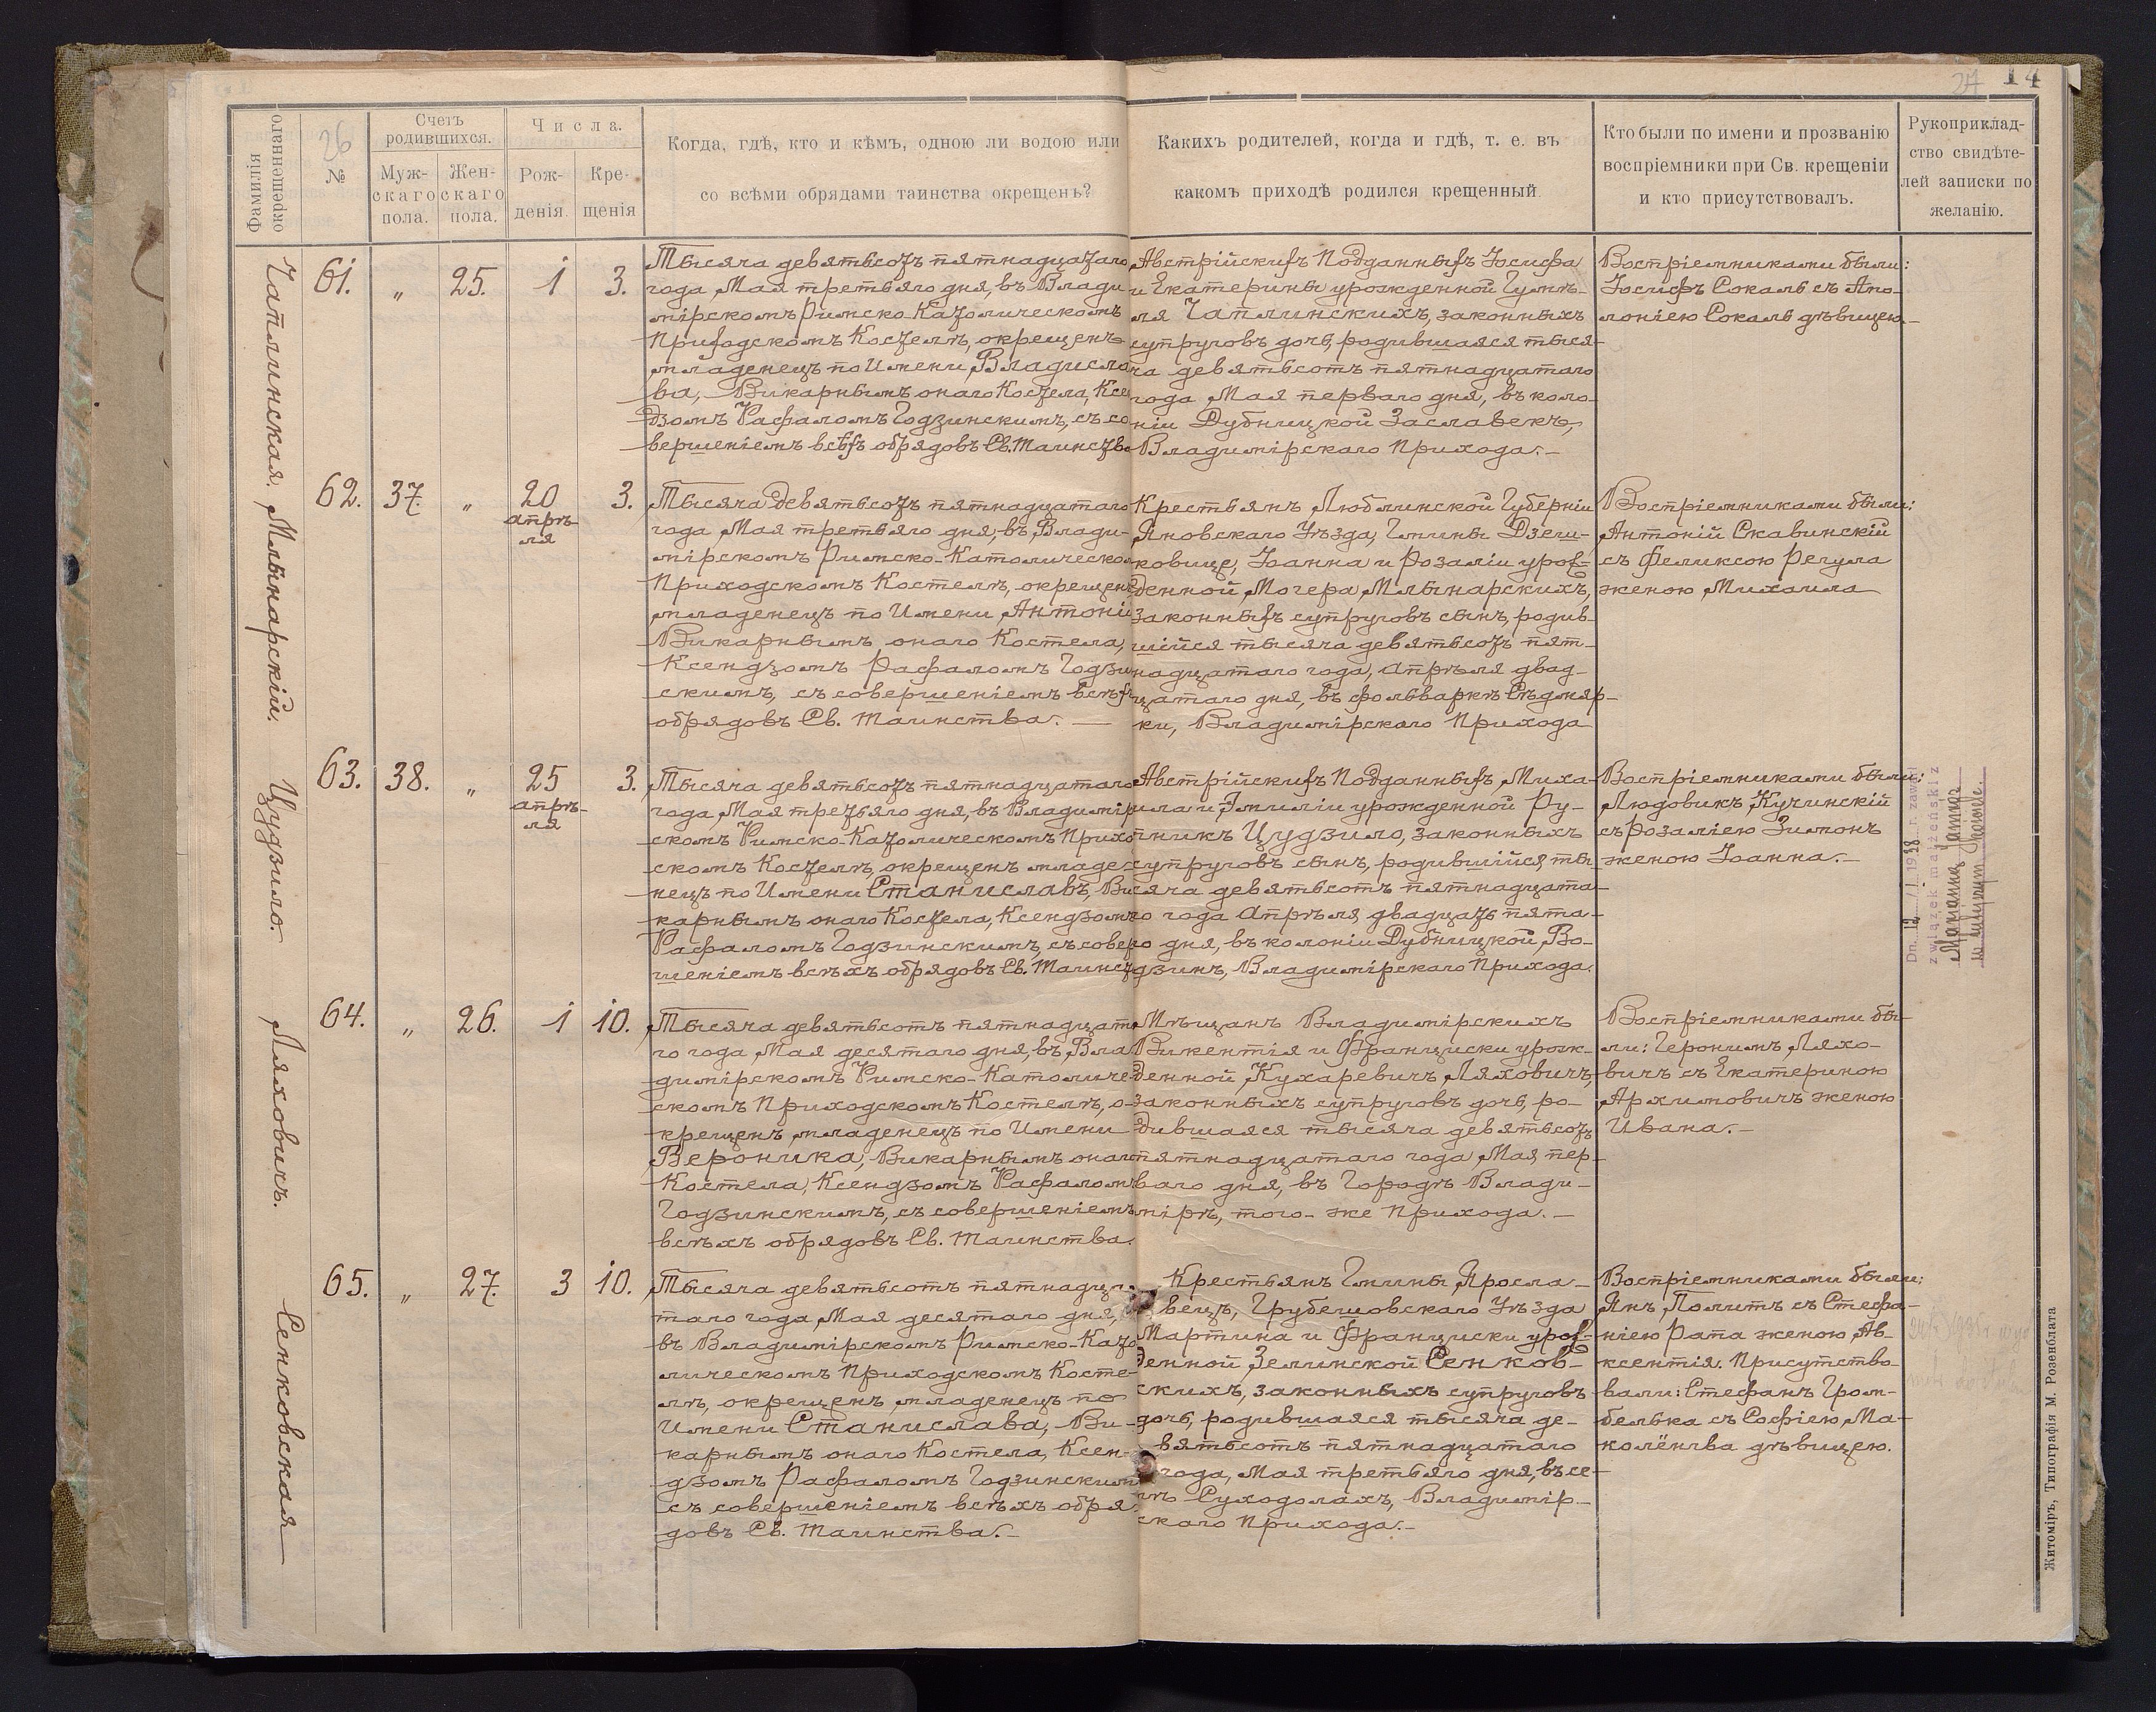 24 14
Фамилія окрещеннаго
26
№
Счетъ родившихся.
Муж-
скаго
пола.
Жен-
скаго
пола.
Числа.
Рож-
денія.
Кре-
щенія
Когда, гдѣ, кто и кѣмъ, одною ли водою или
со всѣми обрядами таинства окрещенъ?
Какихъ родителей, когда и гдѣ, т. е. въ
какомъ приходѣ родился крещенный
Кто были по имени и прозванію
воспріемники при Св. крещеніи
и кто присутствовалъ.
Рукоприклад-
ство свидѣте-
лей записки по
желанію.
Чаплинская.
61. " 25. 1 3.
Тысяча девятьсотъ пятнадцатаго
года, Мая третьяго дня, въ Влади
мірскомъ Римско-Католическомъ
Приходскомъ Костелѣ, окрещенъ
младенецъ по Имени Владисла
ва, Викарнымъ онаго Костела, Ксе
дзомъ Рафаломъ Годзинскимъ, съ со
вершеніемъ всѣхъ обрядовъ Св. Таинства
Австрійскихъ Подданныхъ Іосифа
и Екатерины урожденной Гумѣ-
ля Чаплинскихъ, законныхъ
супруговъ дочь, родившаяся тыся-
ча девятьсотъ пятнадцатаго
года Мая перваго дня, въ коло-
ніи Дубницкой Заславекъ,
Владимірскаго Прихода.-
Воспріемниками были:
Іосифъ Сокаль съ Апо-
лоніею Сокаль дѣвицею
Млынарскій.
62. 37. " 20 апрѣ-
ля 3.
Тысяча девятьсотъ пятнадцатаго
года Мая третьяго дня, въ Влади-
мірскомъ Римско-Католическом
Приходскомъ Костелѣ, окрещенъ
младенецъ по Имени Антоній
Викарнымъ онаго Костела,
Ксендзомъ Рафаломъ Годзи
скимъ, съ совершеніемъ всѣхъ
обрядовъ Св. Таинства.-
Крестьянъ Люблинской Губерніи
Яновскаго Уѣзда, Гмины Дзеш-
ковице, Іоанна и Розаліи урож-
денной Мочера Млынарскихъ,
законныхъ супруговъ сынъ, родив-
шійся тысяча девятьсотъ пят-
надцатаго года, апрѣля двад-
цатаго дня, въ фольваркѣ Сѣдмяр-
ки, Владимірскаго Прихода
Воспріемниками были:
Антоній Скавинскій
съ Феликсою Регула
женою Михаила
Цудзило.
63. 38. " 25 апрѣ-
ля 3.
Тысяча девятьсотъ пятнадцатаго
года, Мая третьяго дня, въ Владимір
скомъ Римско-Католическомъ Прихо
скомъ Костелѣ, окрещенъ младе-
нецъ по Имени Станиславъ, Ви
карнымъ онаго Костела, Ксендзомъ
Рафаломъ Годзинскимъ, съ совер
шеніемъ всѣхъ обрядовъ Св. Таинст
Австрійскихъ Подданныхъ, Миха-
ила и Эмиліи урожденной Ру-
пникъ Цудзило, законныхъ
супруговъ сынъ, родившійся ты
сяча девятьсотъ пятнадцата-
го года Апрѣля двадцать пята-
го дня, въ колоніи Дубницкой, Во-
дзинъ, Владимірскаго Прихода.
Воспріемниками были:
Людовикъ Кучинскій
съ Розаліею Зимонъ
женою Іоанна.-
Dn. 12 / I 1938 r. zawarł
związek małżeński z
Marjanną
Ляховичъ.
64. " 26. 1 10.
Тысяча девятьсотъ пятнадцата
го года Мая десятаго дня, въ Вла
димірскомъ Римско-Католиче
скомъ Приходскомъ Костелѣ, о-
крещенъ младенецъ по Имени
Вероника, Викарнымъ онаго
Костела, Ксендзомъ Рафаломъ
Годзинскимъ, съ совершеніемъ
всѣхъ обрядовъ Св. Таинства.
Мѣщанъ Владимірскихъ
Викентія и Франциски урож-
денной Кухаревичъ Ляховичъ,
законныхъ супруговъ дочь, ро-
дившаяся тысяча девятьсотъ
пятнадцатаго года Мая пер-
ваго дня, въ Городѣ Влади-
мірѣ, того-же Прихода.-
Воспріемниками бы-
ли: Геронимъ Ляхо-
вичъ съ Екатериною
Архимовичъ женою
Ивана.-
Сенковская
65. " 27. 3 10.
Тысяча девятьсотъ пятнадца
таго года Мая десятаго дня,
въ Владимірскомъ Римско-Като
лическомъ Приходскомъ Косте-
лѣ, окрещенъ младенецъ по
Имени Станислава, Ви-
карнымъ онаго Костела, Ксен-
дзомъ Рафаломъ Годзинским
съ совершеніемъ всѣхъ обря
довъ Св. Таинства.-
Крестьянъ Гмины Яросла-
вецъ, Грубешовскаго Уѣзда
Мартина и Франциски урож-
денной Зелинской Сенков-
скихъ, законныхъ супруговъ
дочь, родившаяся тысяча де-
вятьсотъ пятнадцатаго
года, Мая третьяго дня, въ се-
лѣ Суходолахъ, Владимір-
скаго Прихода.-
Воспріемниками были:
Янъ Политъ съ Стефа-
ніею Рапа женою Ав-
ксентія. Присутство-
вали: Стефанъ Гром-
белька съ Софіею Ма-
колёнгва дѣвицею.
Житоміръ, Типографія М. Розенблата